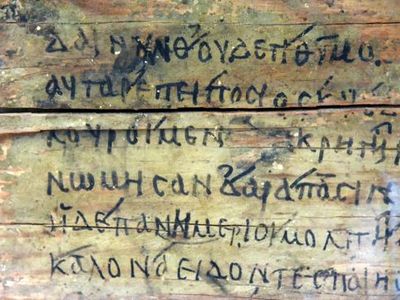 ΔΑΙΝΥΝΘΟΥΔΕΤΙΘΥΜΟ
ΑΥΤΑΡΕΠΕΙΠΟCΙΟC
ΚΟΥΡΟΙΜΕΝ ΚΡΗΤΗ
ΝΩΜΗCΑΝΔΑΡΑΠΑCΙΝ
ΟΙΔΕΠΑΝΗΜΕΡΙΟΙΜΟΛΠΗ
ΚΑΛΟΝΑΕΙΔΟΝΤΕCΠΑΙΗ